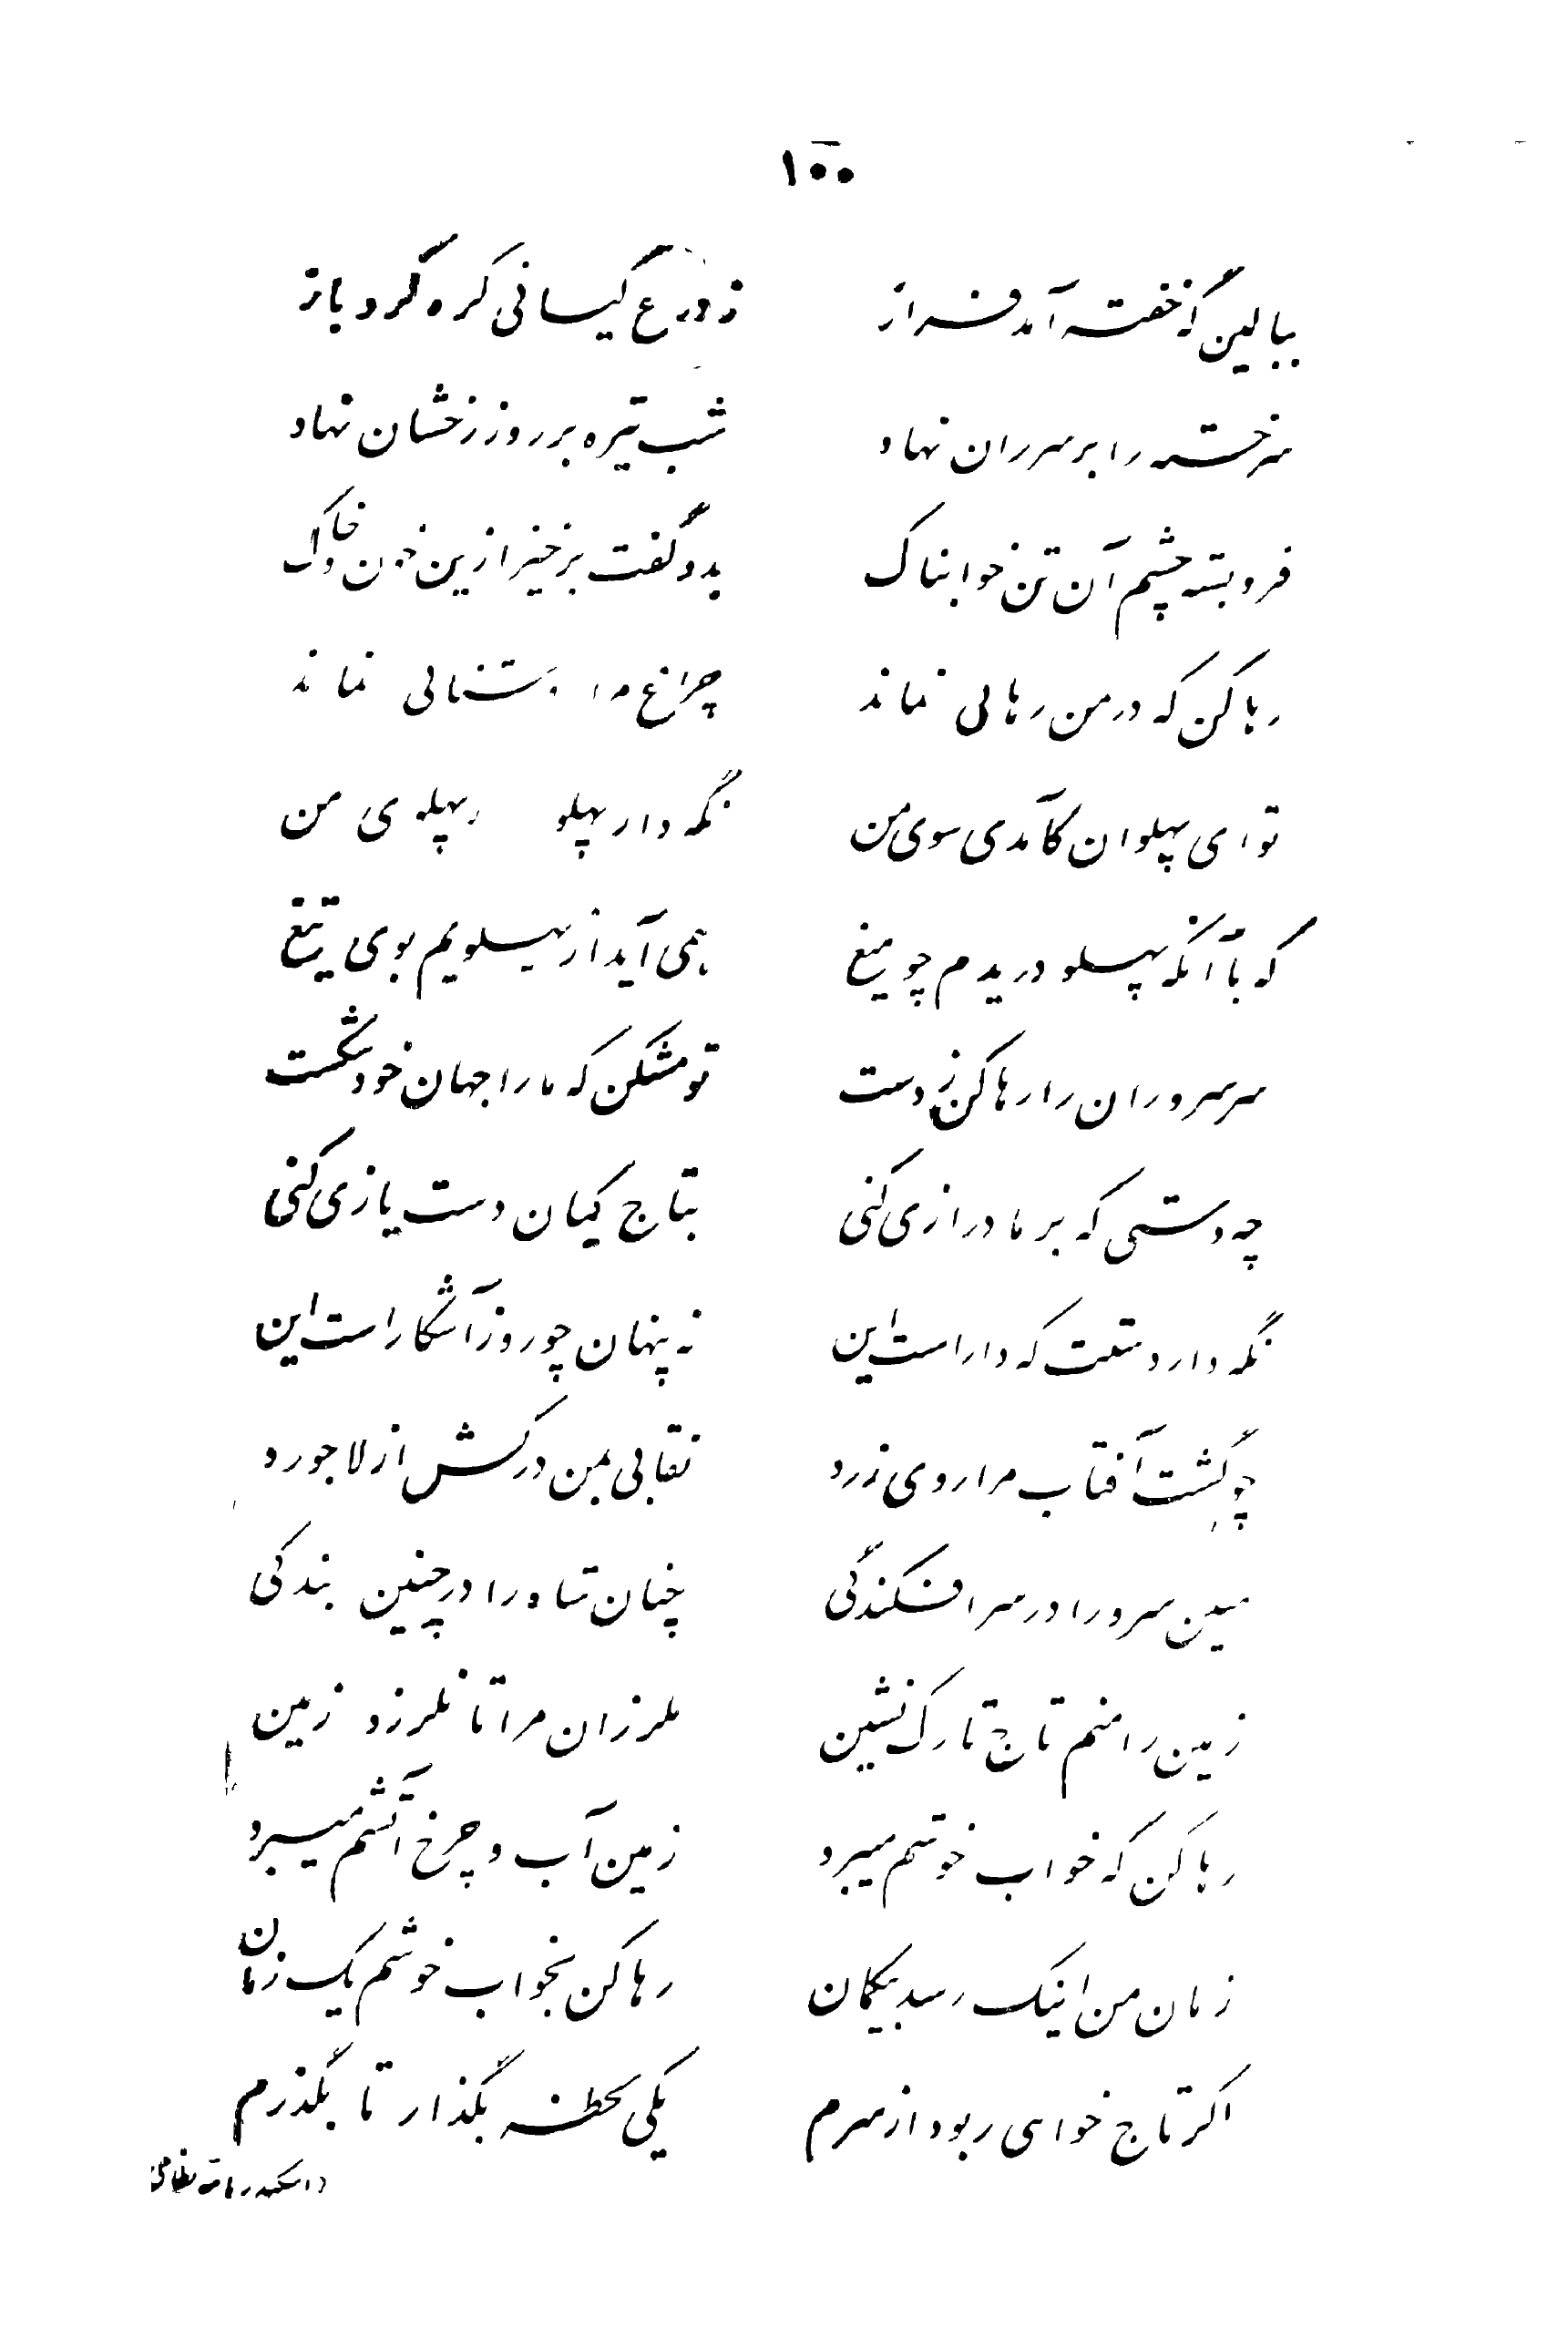 ۱۰۰
ببالین گه خفته آمد فراز ز درع کیانی گره کرد باز
سر خسته را بر سر ران نهاد شب تیره بر روز رخشان نهاد
فروبسته چشم آن تن خوابناک بدو گفت برخیز ازین خون و خاک
رها کن که در من رهائی نماند چراغ مرا روشنائی نماند
تو ای پهلوان کآمدی سوی من نگه دار پهلو ز پهلوی من
که با آنکه پهلو دریدم چو میغ همی آید از پهلویم بوی تیغ
سر سروران را رها کن ز دست تو مشکن که ما را جهان خود شکست
چه دستی که بر ما درازی کنی بتاج کیان دست یازی کنی
نگه دار دستت که داراست این نه پنهان چو روز آشکار است این
چو گشت آفتاب مرا روی زرد نقابی بمن درکش از لاجورد
مبین سرو را در سرافکندگی چنان شاه را در چنین بندگی
زمین را منم تاج تارک نشین ملرزان مرا تا نلرزد زمین
رها کن که خواب خوشم میبرد زمین آب و چرخ آتشم میبرد
زمان من اینک رسد بیگمان رها کن بخواب خوشم یک زمان
اگر تاج خواهی ربود از سرم یکی لحظه بگذار تا بگذرم
(اسکندرنامه نظامی)